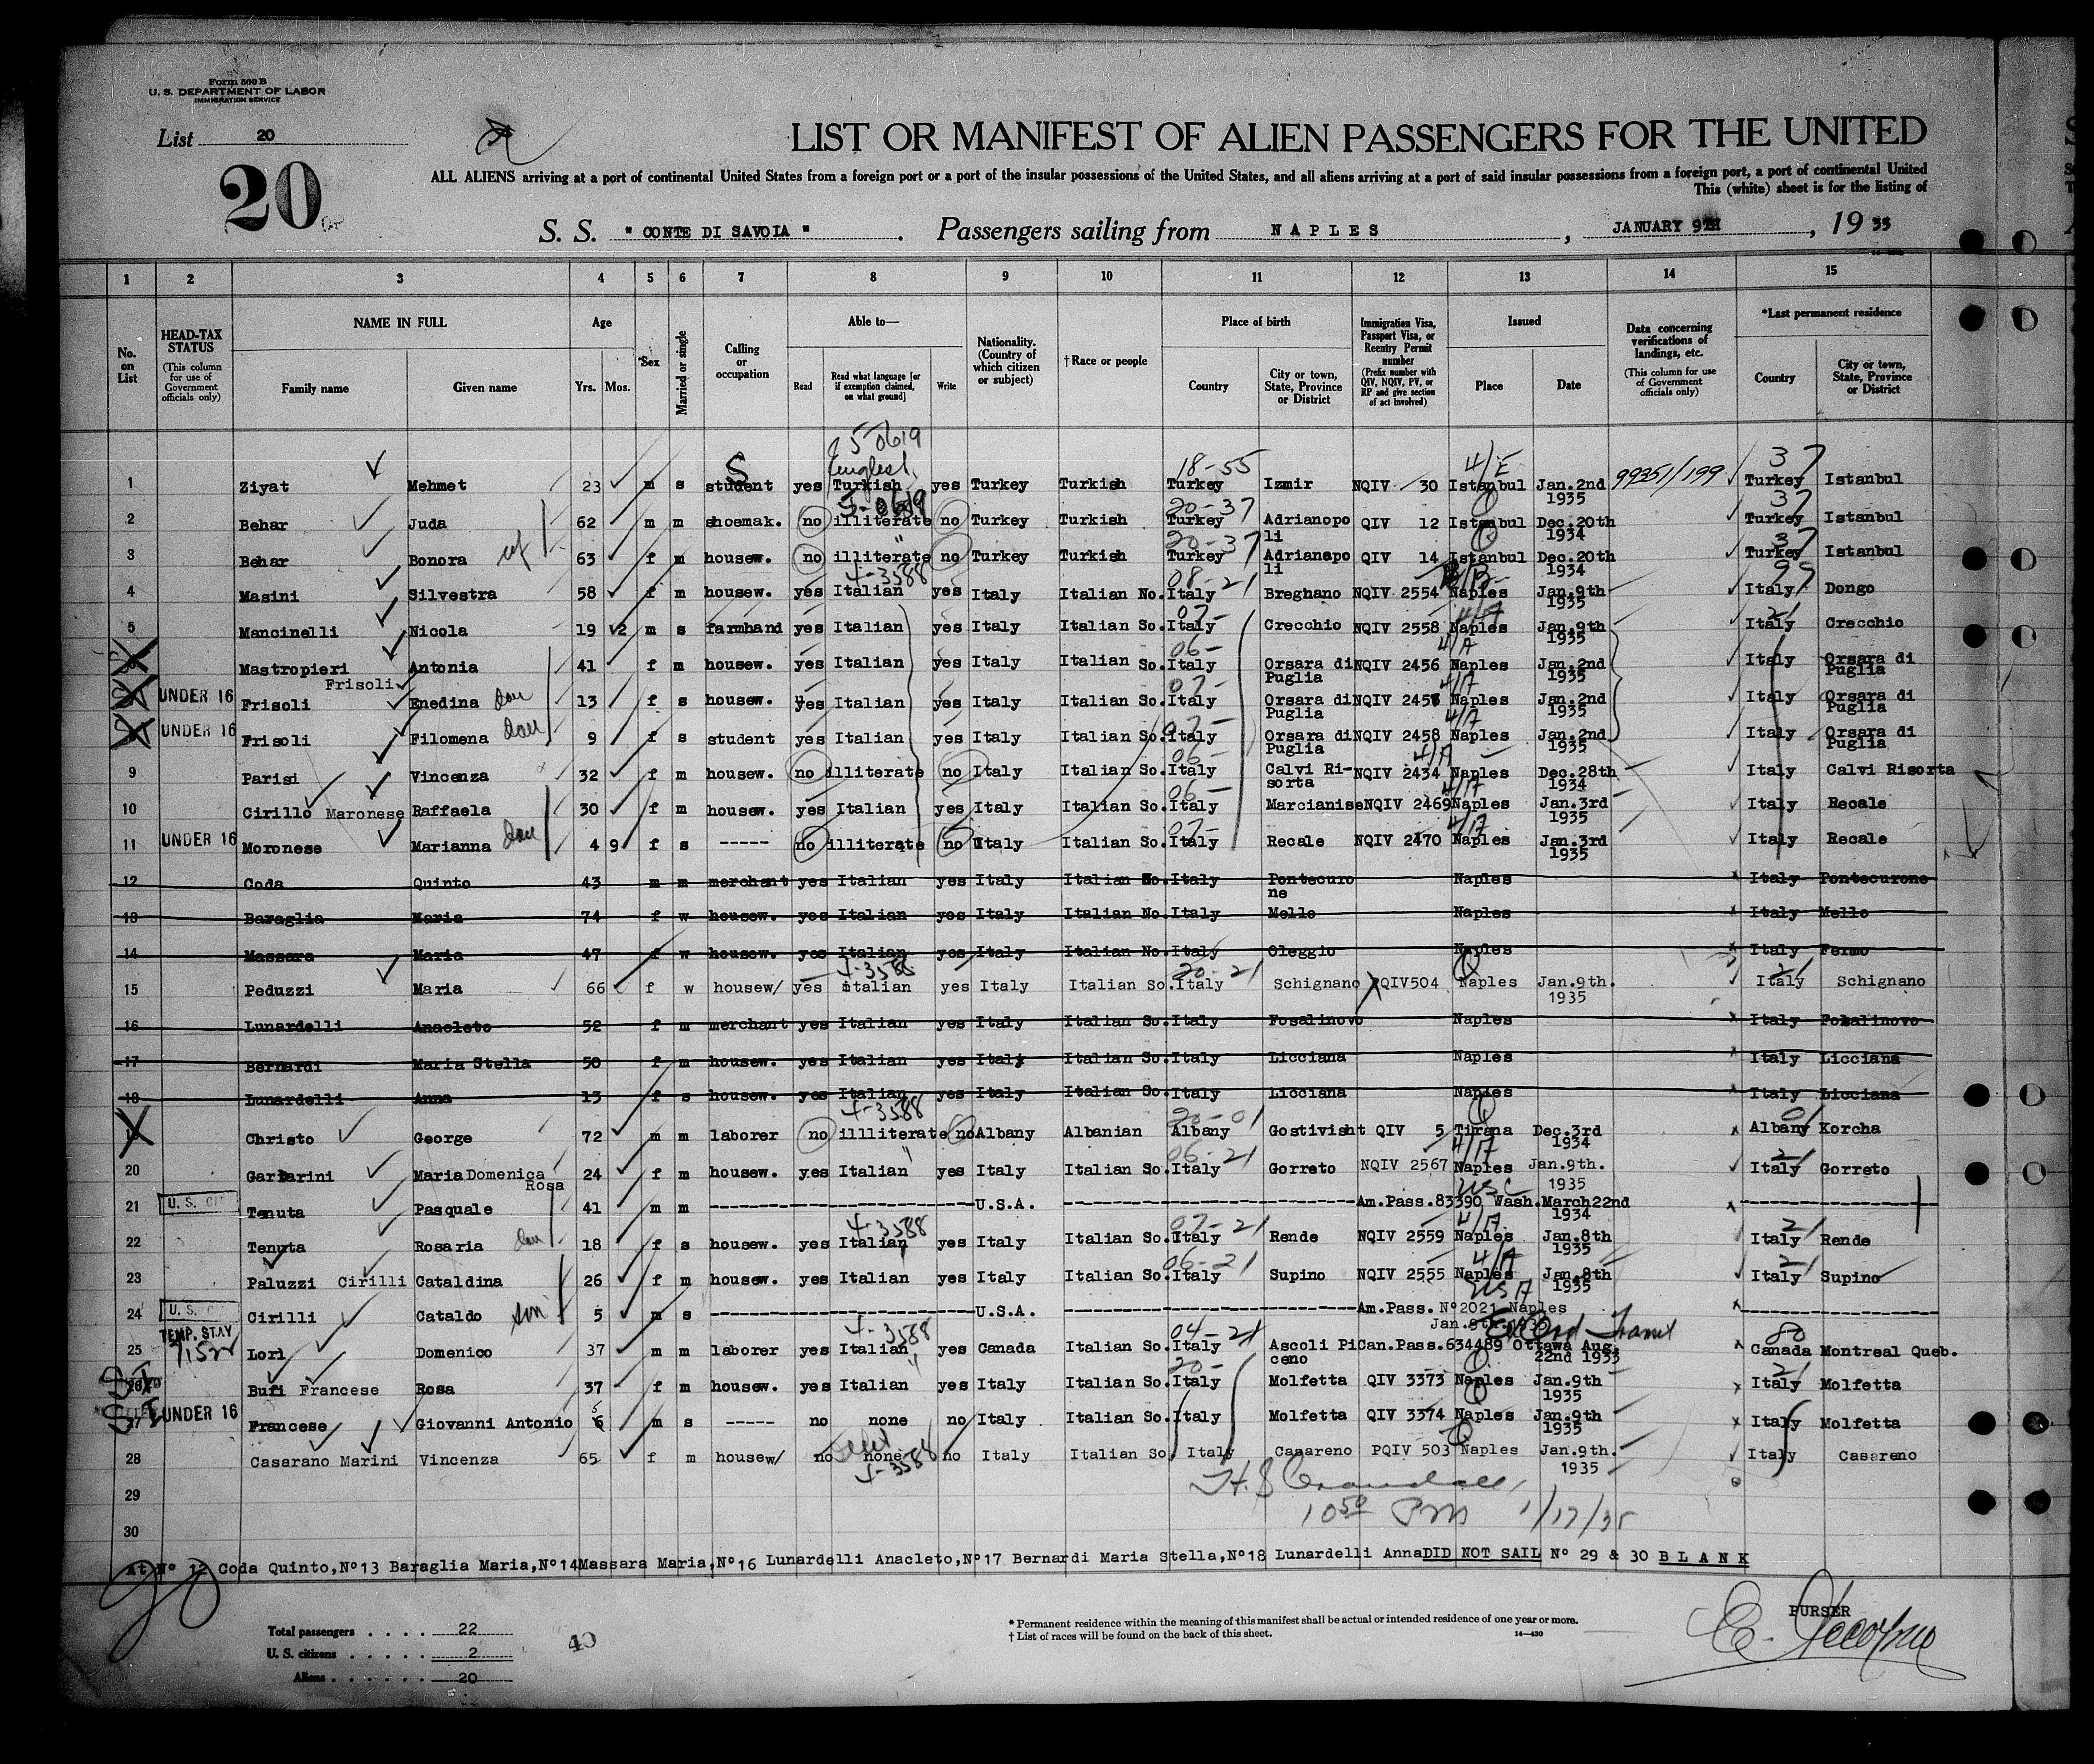 Form 500 B
U. S. DEPARTMENT OF LABOR
IMMIGRATION SERVICE
List 20
20
LIST OR MANIFEST OF ALIEN PASSENGERS FOR THE UNITED
ALL ALIENS arriving at a port of continental United States from a foreign port or a port of the insular possessions of the United States, and all aliens arriving at a port of said insular possessions from a foreign port, a port of continental United
This (white) sheet is for the listing of
S. S. " CONTE DI SAVOIA " . Passengers sailing from NAPLES , JANUARY 9TH , 19 35
1 2 3 4 5 6 7 8 9 10 11 12 13 14 15
No. on List
HEAD-TAX STATUS (This column for use of Government officials only)
NAME IN FULL Family name Given name
Age Yrs. Mos.
Sex
Married or single
Calling or occupation
Able to— Read Read what language [or if exemption claimed, on what ground] Write
Nationality. (Country of which citizen or subject)
†Race or people
Place of birth Country City or town, State, Province or District
Immigration Visa, Passport Visa, or Reentry Permit number (Prefix number with QIV, NQIV, PV, or RP and give section of act involved)
Issued Place Date
Data concerning verifications of landings, etc. (This column for use of Government officials only)
*Last permanent residence Country City or town, State, Province or District
1 Ziyat Mehmet 23 m s student yes Turkish yes Turkey Turkish 18-55 Turkey Izmir NQIV 30 Istanbul Jan.2nd 1935 99351/199 37 Turkey Istanbul
2 Behar Juda 62 m m shoemak. no illiterate no Turkey Turkish 20-37 Turkey Adrianopoli QIV 12 Istanbul Dec.20th 1934 37 Turkey Istanbul
3 Behar Bonora wf 63 f m housew. no illiterate no Turkey Turkish 20-37 Turkey Adrianopoli QIV 14 Istanbul Dec.20th 1934 37 Turkey Istanbul
4 Masini Silvestra 58 f m housew. yes 4-3588 Italian yes Italy Italian No. 08-21 Italy Bregnano NQIV 2554 Naples Jan.9th 1935 Italy Dongo
5 Mancinelli Nicola 19 2 m s farmhand yes Italian yes Italy Italian So. 07- Italy Crecchio NQIV 2558 4/A Naples Jan.9th 1935 21 Italy Crecchio
Mastropieri Frisoli Antonia 41 f m housew. yes Italian yes Italy Italian So. 06- Italy Orsara di Puglia NQIV 2456 4/A Naples Jan.2nd 1935 Italy Orsara di Puglia
UNDER 16 Frisoli Enedina dau 13 f s housew. yes Italian yes Italy Italian So. 07- Italy Orsara di Puglia NQIV 2457 4/A Naples Jan.2nd 1935 Italy Orsara di Puglia
UNDER 16 Frisoli Filomena dau 9 f s student yes Italian yes Italy Italian So. 07- Italy Orsara di Puglia NQIV 2458 4/A Naples Jan.2nd 1935 Italy Orsara di Puglia
9 Parisi Vincenza 32 f m housew. no illiterate no Italy Italian So. 06- Italy Calvi Risorta NQIV 2434 4/A Naples Dec.28th 1934 Italy Calvi Risorta
10 Cirillo Maronese Raffaela 30 f m housew. yes Italian yes Italy Italian So. 06- Italy Marcianise NQIV 2469 4/A Naples Jan.3rd 1935 Italy Recale
11 UNDER 16 Moronese Marianna dau 4 9 f s ----- no illiterate no Italy Italian So. 07- Italy Recale NQIV 2470 4/A Naples Jan.3rd 1935 Italy Recale
12 Coda Quinto 43 m m merchant yes Italian yes Italy Italian No. Italy Pontecurone Naples Italy Pontecurone
13 Baraglia Maria 74 f w housew. yes Italian yes Italy Italian No. Italy Mello Naples Italy Mello
14 Massara Maria 47 f w housew. yes Italian yes Italy Italian No. Italy Oleggio Naples Italy Fermo
15 Peduzzi Maria 66 f w housew/ yes 4-3588 italian yes Italy Italian So. 20-21 Italy Schignano PQIV504 Naples Jan.9th. 1935 21 Italy Schignano
16 Lunardelli Anacleto 52 f m merchant yes Italian yes Italy Italian So. Italy Fosalinovo Naples Italy Fosalinovo
17 Bernardi Maria Stella 50 f m housew. yes Italian yes Italy Italian So. Italy Licciana Naples Italy Licciana
18 Lunardelli Anna 13 f s housew. yes Italian yes Italy Italian So. Italy Licciana Naples Italy Licciana
Christo George 72 m m laborer no 4-3588 illliterate no Albany Albanian 20-01 Albany Gostivisht QIV 5 Tirana Dec.3rd 1934 01 Albany Korcha
20 Garbarini Maria Domenica Rosa 24 f m housew. yes Italian yes Italy Italian So. 06-21 Italy Gorreto NQIV 2567 4/A Naples Jan.9th. 1935 21 Italy Gorreto
21 U. S. CIT Tenuta Pasquale 41 m m U.S.A. Am.Pass.83390 USC Wash.March22nd 1934
22 Tenuta Rosaria dau 18 f s housew. yes 4-3588 Italian yes Italy Italian So. 07-21 Italy Rende NQIV 2559 4/A Naples Jan.8th 1935 21 Italy Rende
23 Paluzzi Cirilli Cataldina 26 f m housew. yes Italian yes Italy Italian So. 06-21 Italy Supino NQIV 2555 4/A Naples Jan.8th 1935 21 Italy Supino
24 U. S. C Cirilli Cataldo son 5 m s U.S.A. Am.Pass. Nº2021 Naples Jan.8th.1935
25 TEMP. STAY Lori Domenico 37 m m laborer yes 4-3588 Italian yes Canada Italian So. 04-21 Italy Ascoli Piceno Can.Pass.634489 Ottawa Aug. 22nd 1933 Transit 80 Canada Montreal Queb.
26 Bufi Francese Rosa 37 f m housew. yes Italian yes Italy Italian So. 20- Italy Molfetta QIV 3373 Naples Jan.9th 1935 21 Italy Molfetta
27 UNDER 16 Francese Giovanni Antonio 5 m s ----- no none no Italy Italian So. Italy Molfetta QIV 3374 Naples Jan.9th 1935 Italy Molfetta
28 Casarano Marini Vincenza 65 f m housew/ no none 4-3588 no Italy Italian So Italy Casareno PQIV 503 Naples Jan.9th. 1935 Italy Casareno
29
30
10 50 PM 1/17/35
At Nº 12 Coda Quinto,Nº13 Baraglia Maria,Nº14Massara Maria,Nº16 Lunardelli Anacleto,Nº17 Bernardi Maria Stella,Nº18 Lunardelli AnnaDID NOT SAIL Nº 29 & 30 BLANK
Total passengers . . . . 22
U. S. citizens . . . . . 2
Aliens . . . . . . 20
40
* Permanent residence within the meaning of this manifest shall be actual or intended residence of one year or more.
† List of races will be found on the back of this sheet.
14—430
PURSER